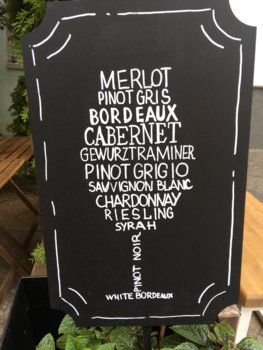 MERLOT
PINOT GRIS
BORDEAUX
CABERNET
GEWURZTRAMINER
PINOT GRIGIO
SAUVIGNON BLANC
CHARDONNAY
RIESLING
SYRAH
PINOT NOIR
WHITE BORDEAUX